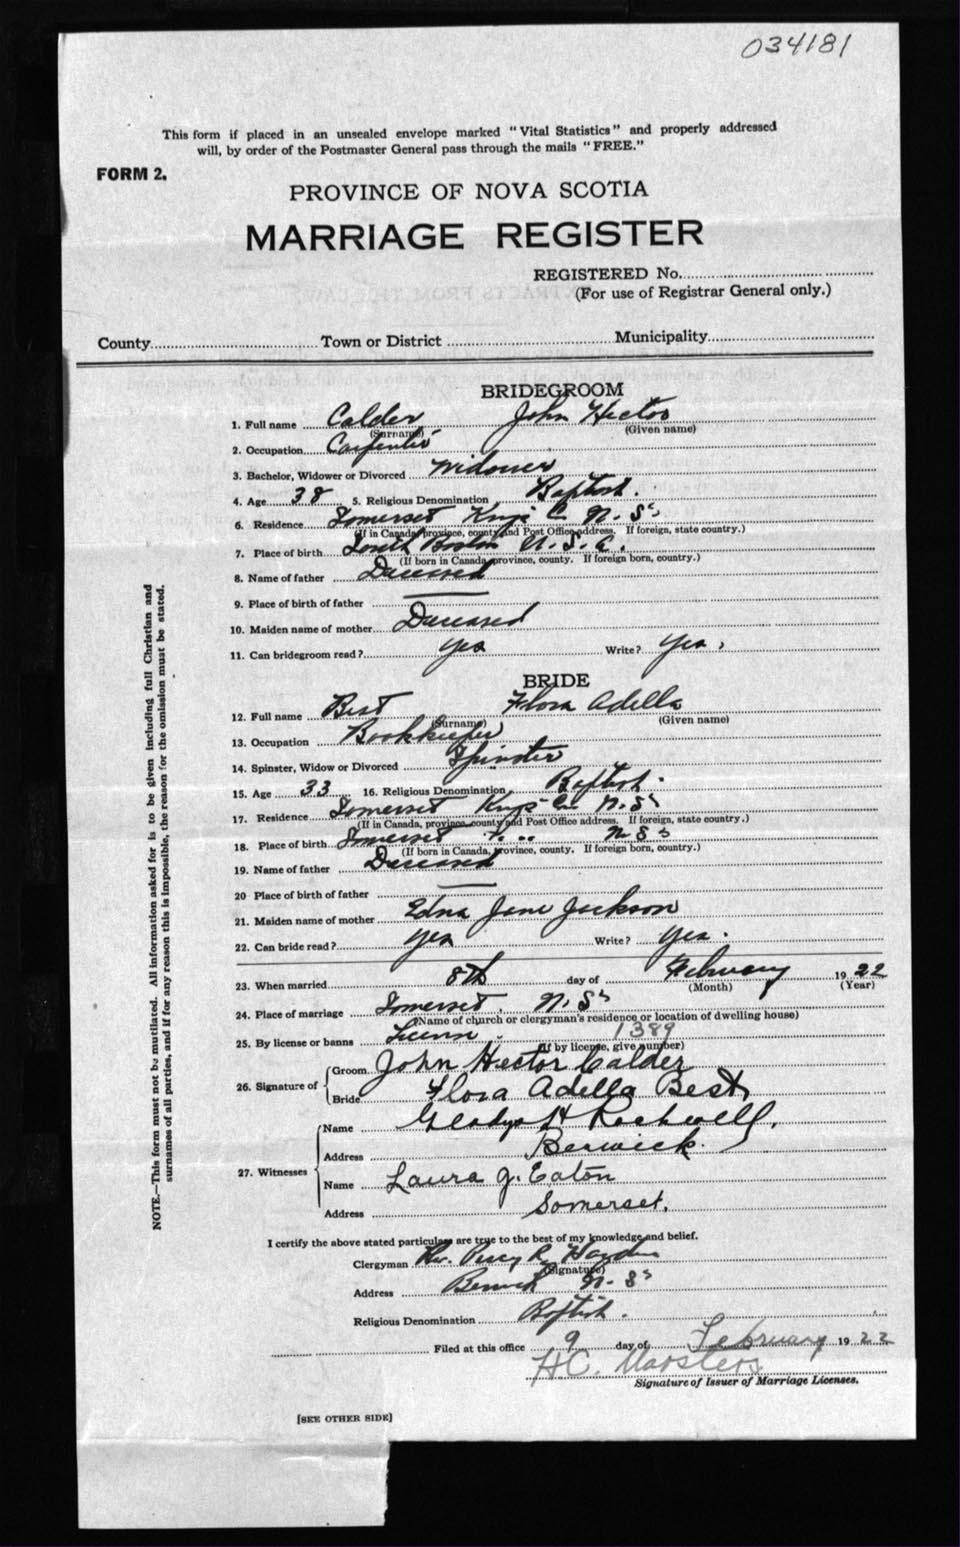 034181
This form if placed in an unsealed envelope marked "Vital Statistics" and properly addressed
will, by order of the Postmaster General pass through the mails "FREE."
FORM 2.
PROVINCE OF NOVA SCOTIA
MARRIAGE REGISTER
REGISTERED No.
(For use of Registrar General only.)
County Town or District Municipality
BRIDEGROOM
1. Full name Calder John Hector
(Surname) (Given name)
2. Occupation Carpenter
3. Bachelor, Widower or Divorced Widower
4. Age 38 5. Religious Denomination Baptist.
6. Residence Somerset Kings Co N. Sa
(If in Canada, province, county and Post Office address. If foreign, state country.)
7. Place of birth South Boston U. S. A.
(If born in Canada, province, county. If foreign born, country.)
8. Name of father Deceased
9. Place of birth of father
10. Maiden name of mother Deceased
11. Can bridegroom read? Yes Write? Yes.
BRIDE
12. Full name Best Flora Adella
(Surname) (Given name)
13. Occupation Bookkeeper
14. Spinster, Widow or Divorced Spinster
15. Age 33 16. Religious Denomination Baptist.
17. Residence Somerset Kings Co N. Sa
(If in Canada, province, county and Post Office address. If foreign, state country.)
18. Place of birth Somerset " " N S a
(If born in Canada, province, county. If foreign born, country.)
19. Name of father Deceased
20 Place of birth of father
21. Maiden name of mother Edna Jane Jackson
22. Can bride read? Yes Write? Yes.
23. When married 8th day of February 1922
(Month) (Year)
24. Place of marriage Somerset, N. Sa
(Name of church or clergyman's residence or location of dwelling house)
25. By license or banns License. 1389
(If by license, give number)
26. Signature of Groom John Hector Calder
Bride Flora Adella Best
27. Witnesses Name Gladys H Rockwell,
Address Berwick.
Name Laura J. Eaton
Address Somerset.
I certify the above stated particulars are true to the best of my knowledge and belief.
Clergyman Rev. Percy R. Hayden
(Signature)
Address Berwick N. Sa
Religious Denomination Baptist.
Filed at this office 9 day of February 1922
H.C. Marsters
Signature of Issuer of Marriage Licenses.
[SEE OTHER SIDE]
NOTE.—This form must not be mutilated. All information asked for is to be given including full Christian and
surnames of all parties, and if for any reason this is impossible, the reason for the omission must be stated.